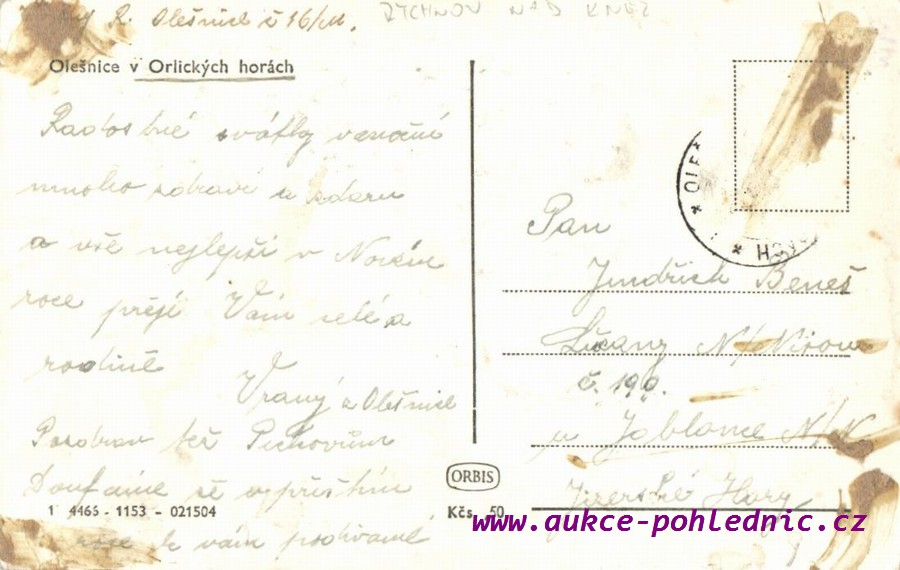 R. Olešnice č 16/
RYCHNOV NAD KNEZ
Olešnice v Orlických horách
Radostné svátky vanoční
mnoho zdraví a zdaru
a vše nejlepší v Novém
roce přejí Vám celé a
rodině
Vraný z Olešnice
Pozdrav též Pichovým
Doufáme že v příštím
roce k vám podíváme
1 4466 - 1153 - 021504
ORBIS
Kčs 50
OLE
HORÁCH
Pan
Jindřich Beneš
Lučany N/Nisou
č. 190.
u Jablonce N/N
Jizerské Hory
www.aukce-pohlednic.cz